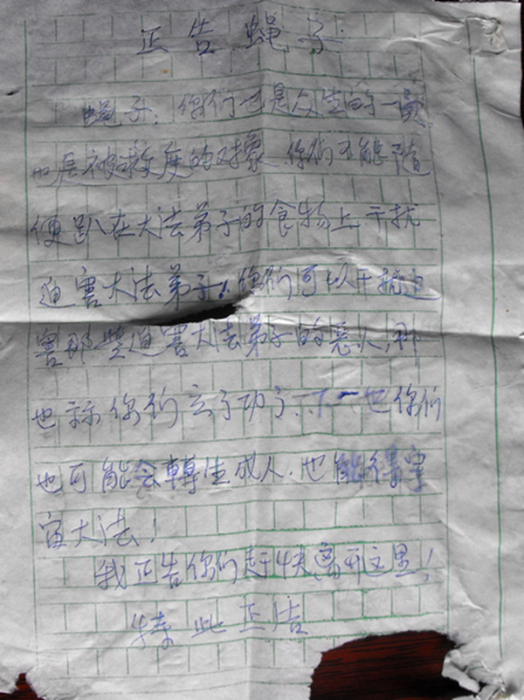 正告蝇子
蝇子：你们也是众生的一员
也是被救度的对象 你们不能随
便趴在大法弟子的食物上干扰
迫害大法弟子！你们可以干扰迫
害那些迫害大法弟子的恶人，那
也示你们立了功了.下一世你们
也可能会轉生成人.也能得宇
宙大法！
我正告你们赶快离开这里！
特此正告